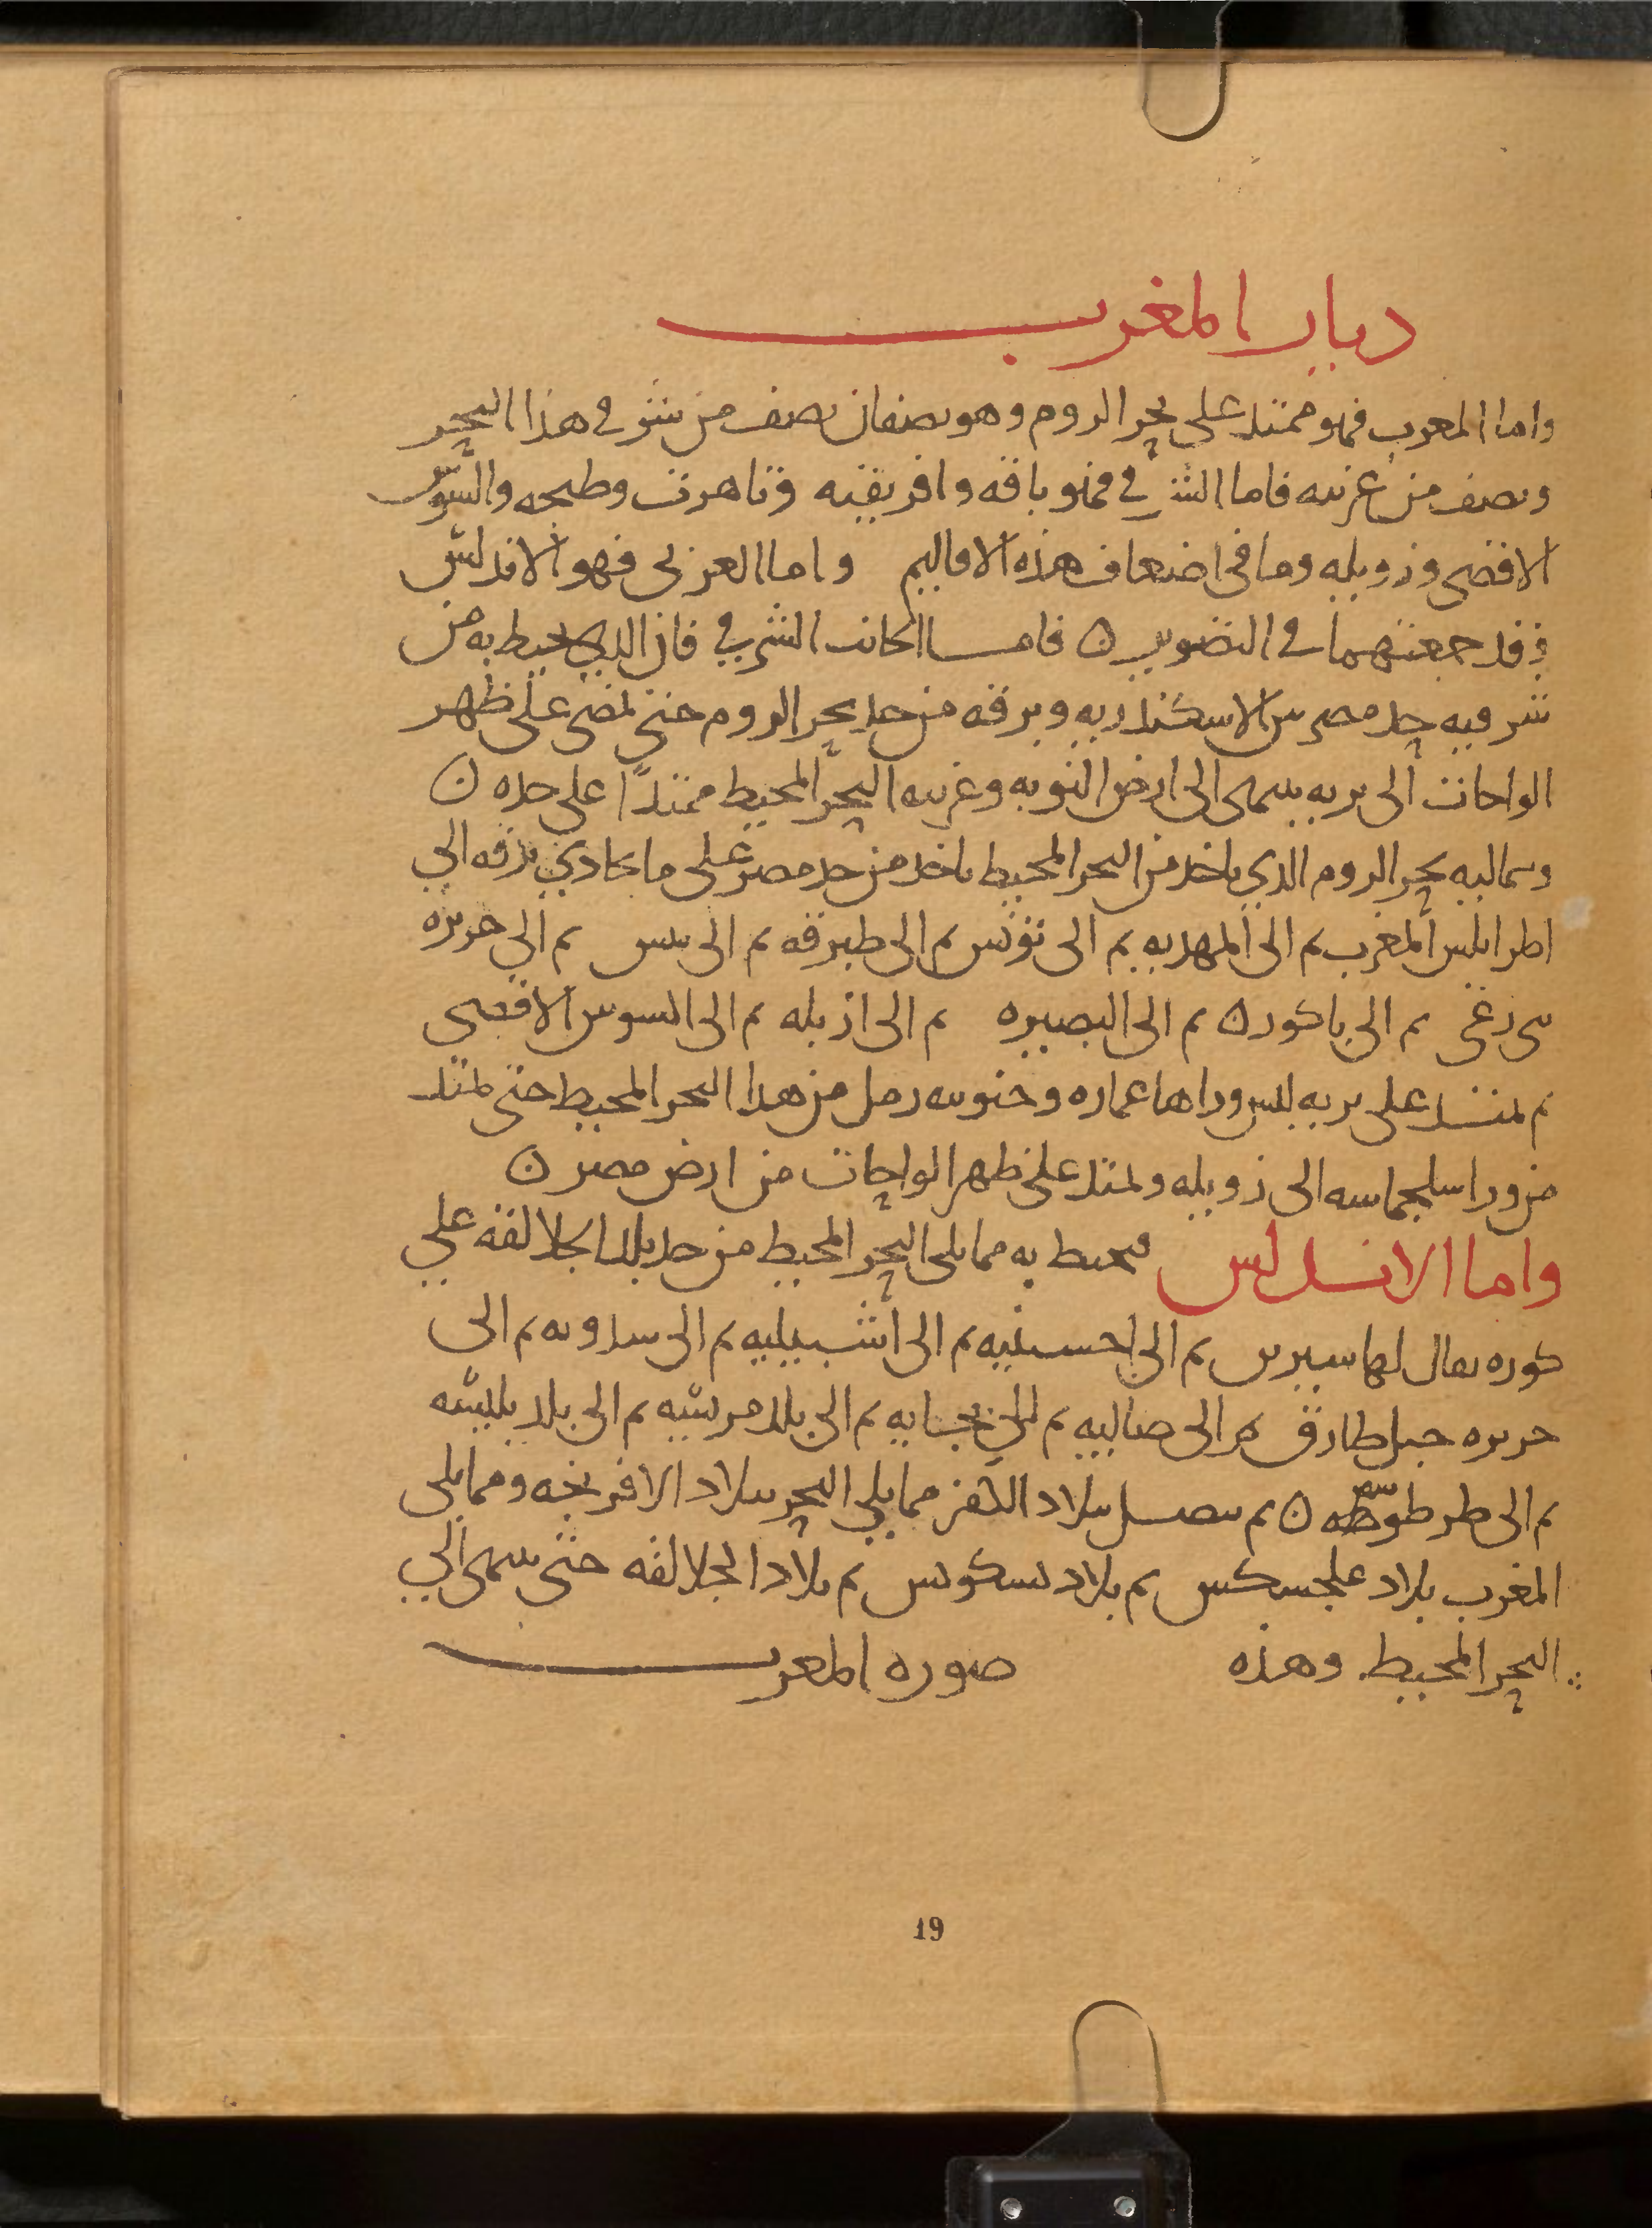 ديار المغرب
واما المغرب فهو ممتد على بحر الروم وهو نصفان نصف من شرقي هذا البحر
ونصف من غربيه فاما الشرقي فهو باقه وافريقيه وتاهرت وطنجه والسوس
الاقصى وزويله وما في اضعاف هذه الاقاليم واما الغربي فهو الاندلس
وقد جمعتهما في التصوير ن فاما الجانب الشرقي فان الذي يحيط به من
شرقيه حد مصر بين الاسكندريه وبرقه من حد بحر الروم حتى تمضى على ظهر
الواحات الى بريه ينتهى الى ارض النوبه وغربيه البحر المحيط ممتدا على حده ن
وشماليه بحر الروم الذي ياخذ من البحر المحيط ياخذ من حد مصر على ما يحاذي برقه الي
اطرابلس المغرب ثم الى المهديه ثم الى تونس ثم الى طبرقه ثم الى تنس ثم الى جزيره
بنى زغنى ثم الى باكور ن ثم الى البصيره ثم الى ازيله ثم الى السوس الاقصى
ثم تمتد على بريه ليس وراها عماره وجنوبيه رمل من هذا البحر المحيط حتى تمتد
من ورا سلجماسه الى زويله وتمتد على ظهر الواحات من ارض مصر ن
واما الاندلس فيحيط به مما يلى البحر المحيط من حد بلد الجلالقه علي
كوره يقال لها سيرين ثم الى احسنبه ثم الى اشبيليه ثم الى سدونه ثم الى
جزيره جبل طارق ثم الى مالقيه ثم الى بجايه ثم الى بلاد مرسيه ثم الى بلاد بلنسيه
ثم الى طرطوسه ن ثم يتصل ببلاد الكفر مما يلي البحر ببلاد الافرنجه ومما يلى
المغرب ببلاد علجسكس ثم ببلاد بسكونس ثم ببلاد الجلالقه حتى ينتهى الي
البحر المحيط وهذه صوره المغرب
19